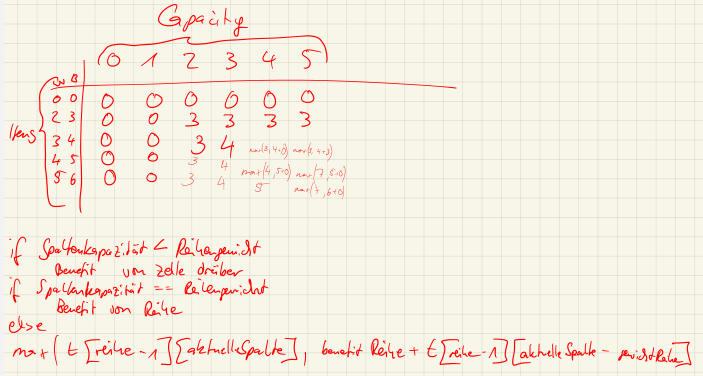 Capacity
0 1 2 3 4 5
W B
0 0 0 0 0 0 0 0
Items 2 3 0 0 3 3 3 3
3 4 0 0 3 4 max(3, 4+0) max(3, 4+3)
4 5 0 0 3 4 max(4, 5+0) max(7, 5+0)
5 6 0 0 3 4 5 max(7, 6+0)
if Spaltenkapazität < Reihengewicht
Benefit von Zelle drüber
if Spaltenkapazität == Reihengewicht
Benefit von Reihe
else
max( t[reihe-1][aktuelleSpalte], benefit Reihe + t[reihe-1][aktuelle Spalte - gewichtReihe]